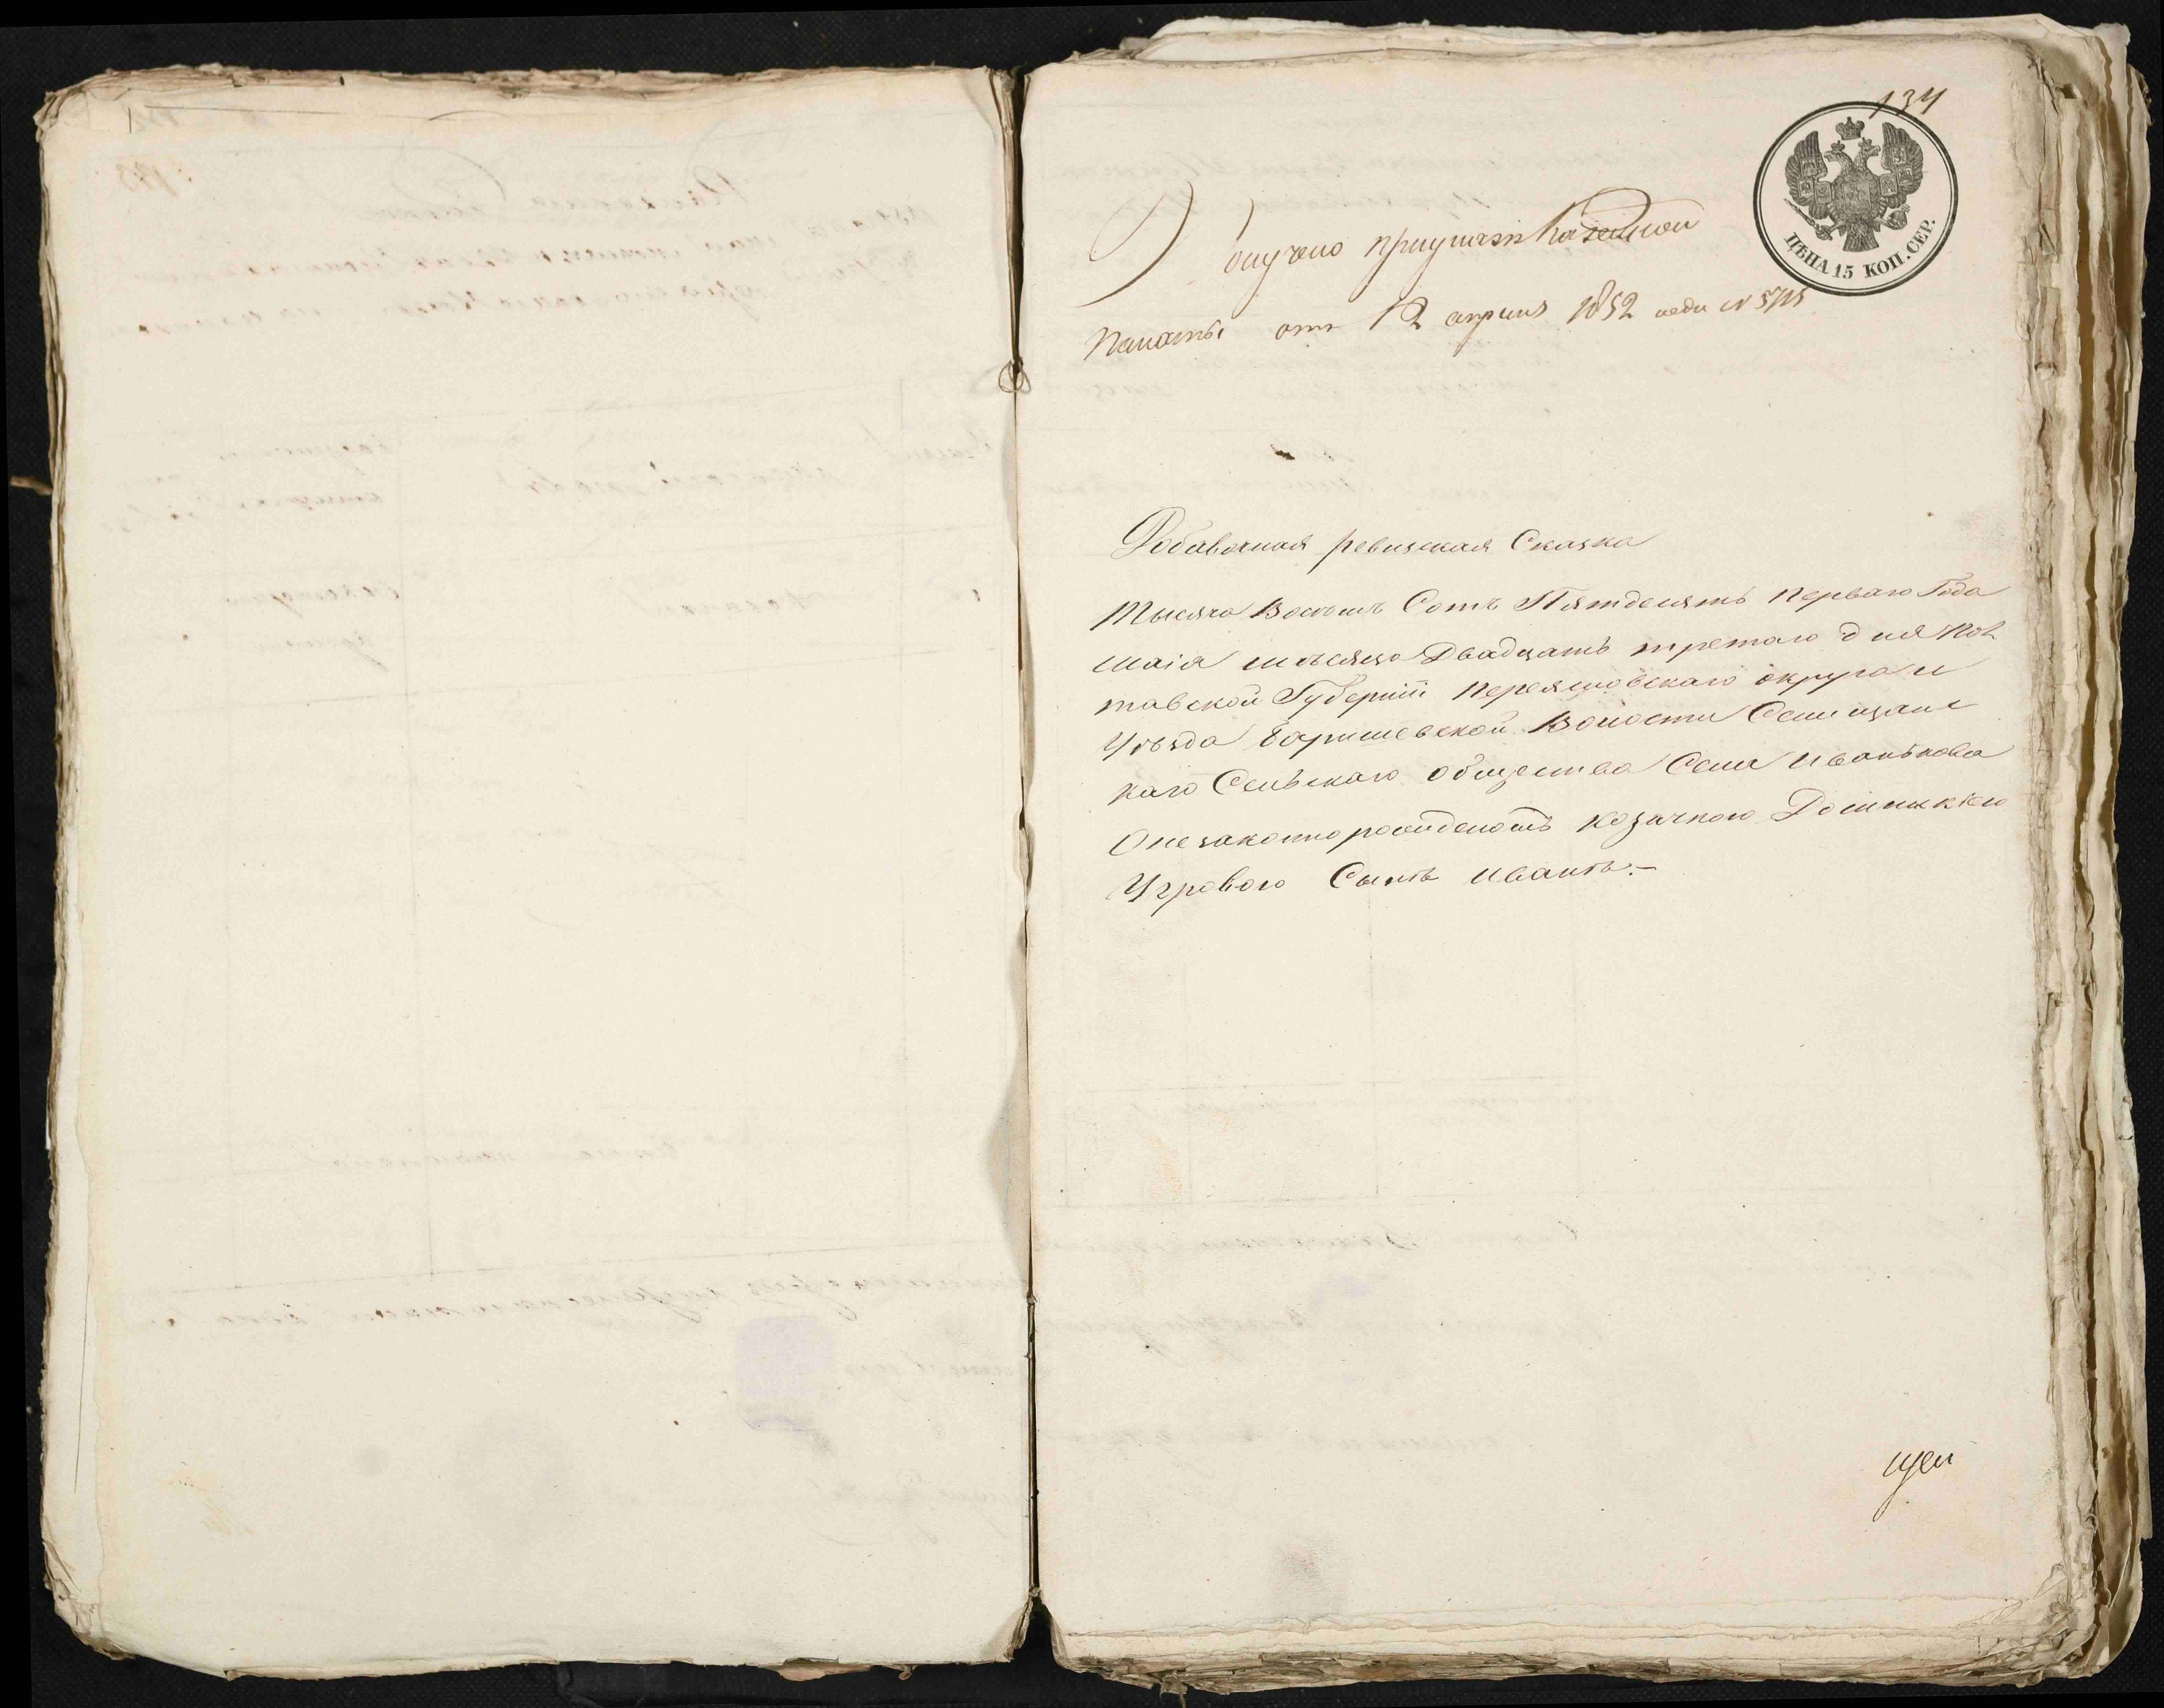 134
ЦѢНА 15 КОП. СЕР.
Получено при указѣ Казенной
Палаты отъ 12 апрѣля 1852 года №
Добавочная ревизская Сказка
Тысяча Восемъ Сотъ Пятдесятъ перваго Года
маія мѣсяца Двадцать третаго дня Пол
тавской Губерніи Переясловскаго округа и
Уѣзда Баришевской Волости Селищанс
каго Сельскаго общества Села Иванькова
О незаконнорожденомъ козачкою Домникіею
Угровою Сынѣ Иванѣ.-